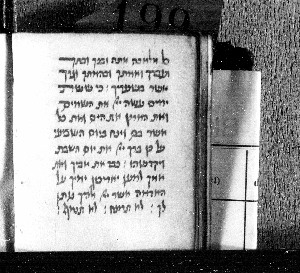 199
כל מלאכה אתה ובנך ובתך
ועבדך ואמתך ובהמתך וגרך
אשר בשעריך : כי ששת
ימים עשה ייי את השמים
ואת הארץ את הים ואת כל
אשר בם וינח ביום השביעי
על כן ברך ייי את יום השבת
ויקדשהו : כבד את אביך ואת
אמך למען יאריכון ימיך על
האדמה אשר ייי אלהיך נותן
לך : לא תרצח : לא תנאף :